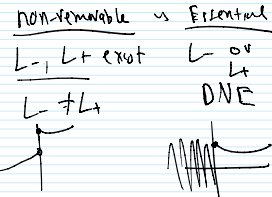 non-removable vs Essential
L-, L+ exist
L- or L+
DNE
L- ≠ L+